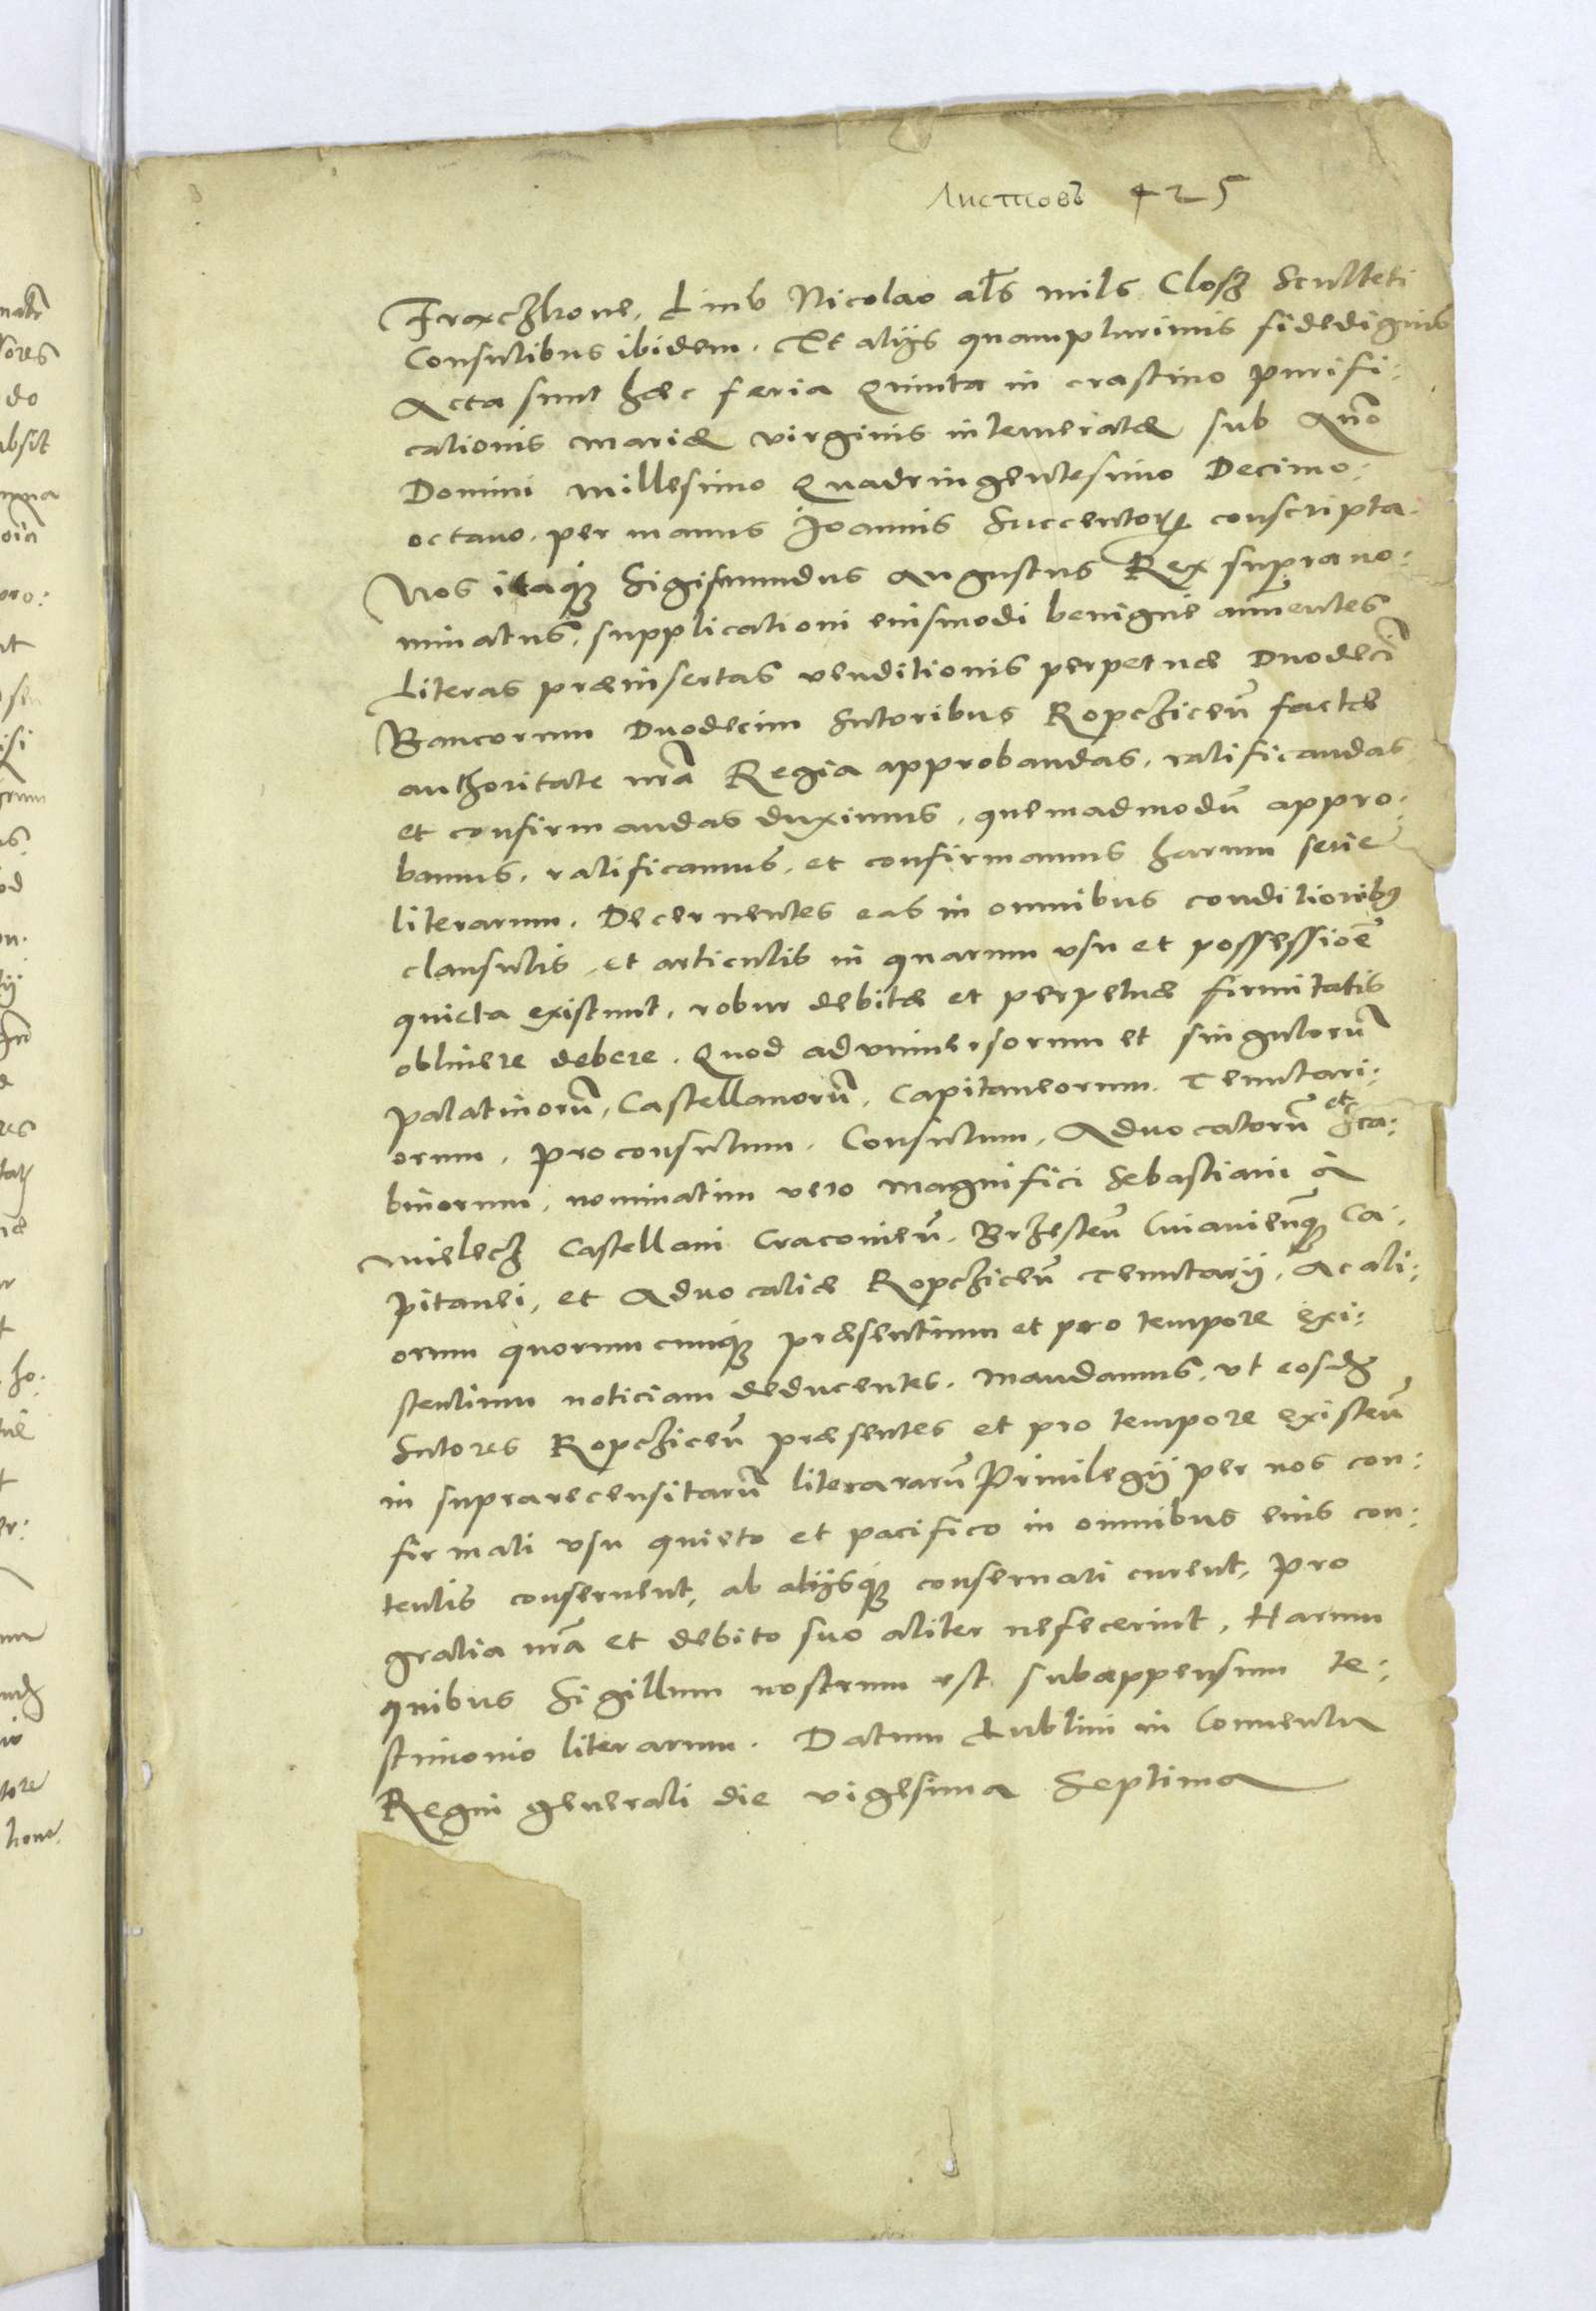 Листовъ 425
Fraxczkone, Linb Nicolao als mils Closz Sculteti
Consulibus ibidem. Et alijs quamplurimis fidedignis
Acta sunt haec feria Quinta in crastino purifi:
cationis mariae virginis intemeratae sub Anno
Domini millesimo Quadringentesimo Decimo:
octauo. per manus Joannis Succentoris conscripta.
Nos itaque Sigismundus Augustus Rex suprano:
minatus, supplicationi eiusmodi benigne annuentes
Literas praeinsertas venditionis perpetuae Duodecī
Bancorum Duodecim Sutoribus Ropcziceñ factae
authoritate nrã Regia approbandas, ratificandas
et confirmandas duximus, quemadmodū appro:
bamus, ratificamus, et confirmamus harum serie
literarum. Decernentes eas in omnibus conditionibꝰ
clausulis, et articulis in quarum vsu et possessiõe
quieta existunt, robur debitae et perpetuae firmitatis
obtinere debere. Quod ad vniuersorum et singulorū
palatinorū, Castellanorū, Capitaneorum, Tenutari:
orum, proconsulum, Consulum, Aduocatorū et Sca:
binorum, nominatim vero magnifici Sebastiani à
Mielecz Castellani Cracovieñ, Brzesteñ Cuiauieñque Ca:
pitanei, et Aduocatiae Ropcziceñ Tenutarij, Ac ali:
orum quorumcunque praesentium et pro tempore exi:
stentium noticiam deducentes. Mandamus, vt eosdē
Sutores Ropcziceñ praesentes et pro tempore existeñ
in suprarecensitarū literararū Priuilegij per nos con:
firmati vsu quieto et pacifico in omnibus eius con:
tentis conseruent, ab alijsque conseruari curent, pro
gratia nrã et debito suo aliter nefecerint, Harum
quibus Sigillum nostrum est subappensum te:
stimonio literarum. Datum Lublini in Conuentu
Regni generali die vigesima Septima